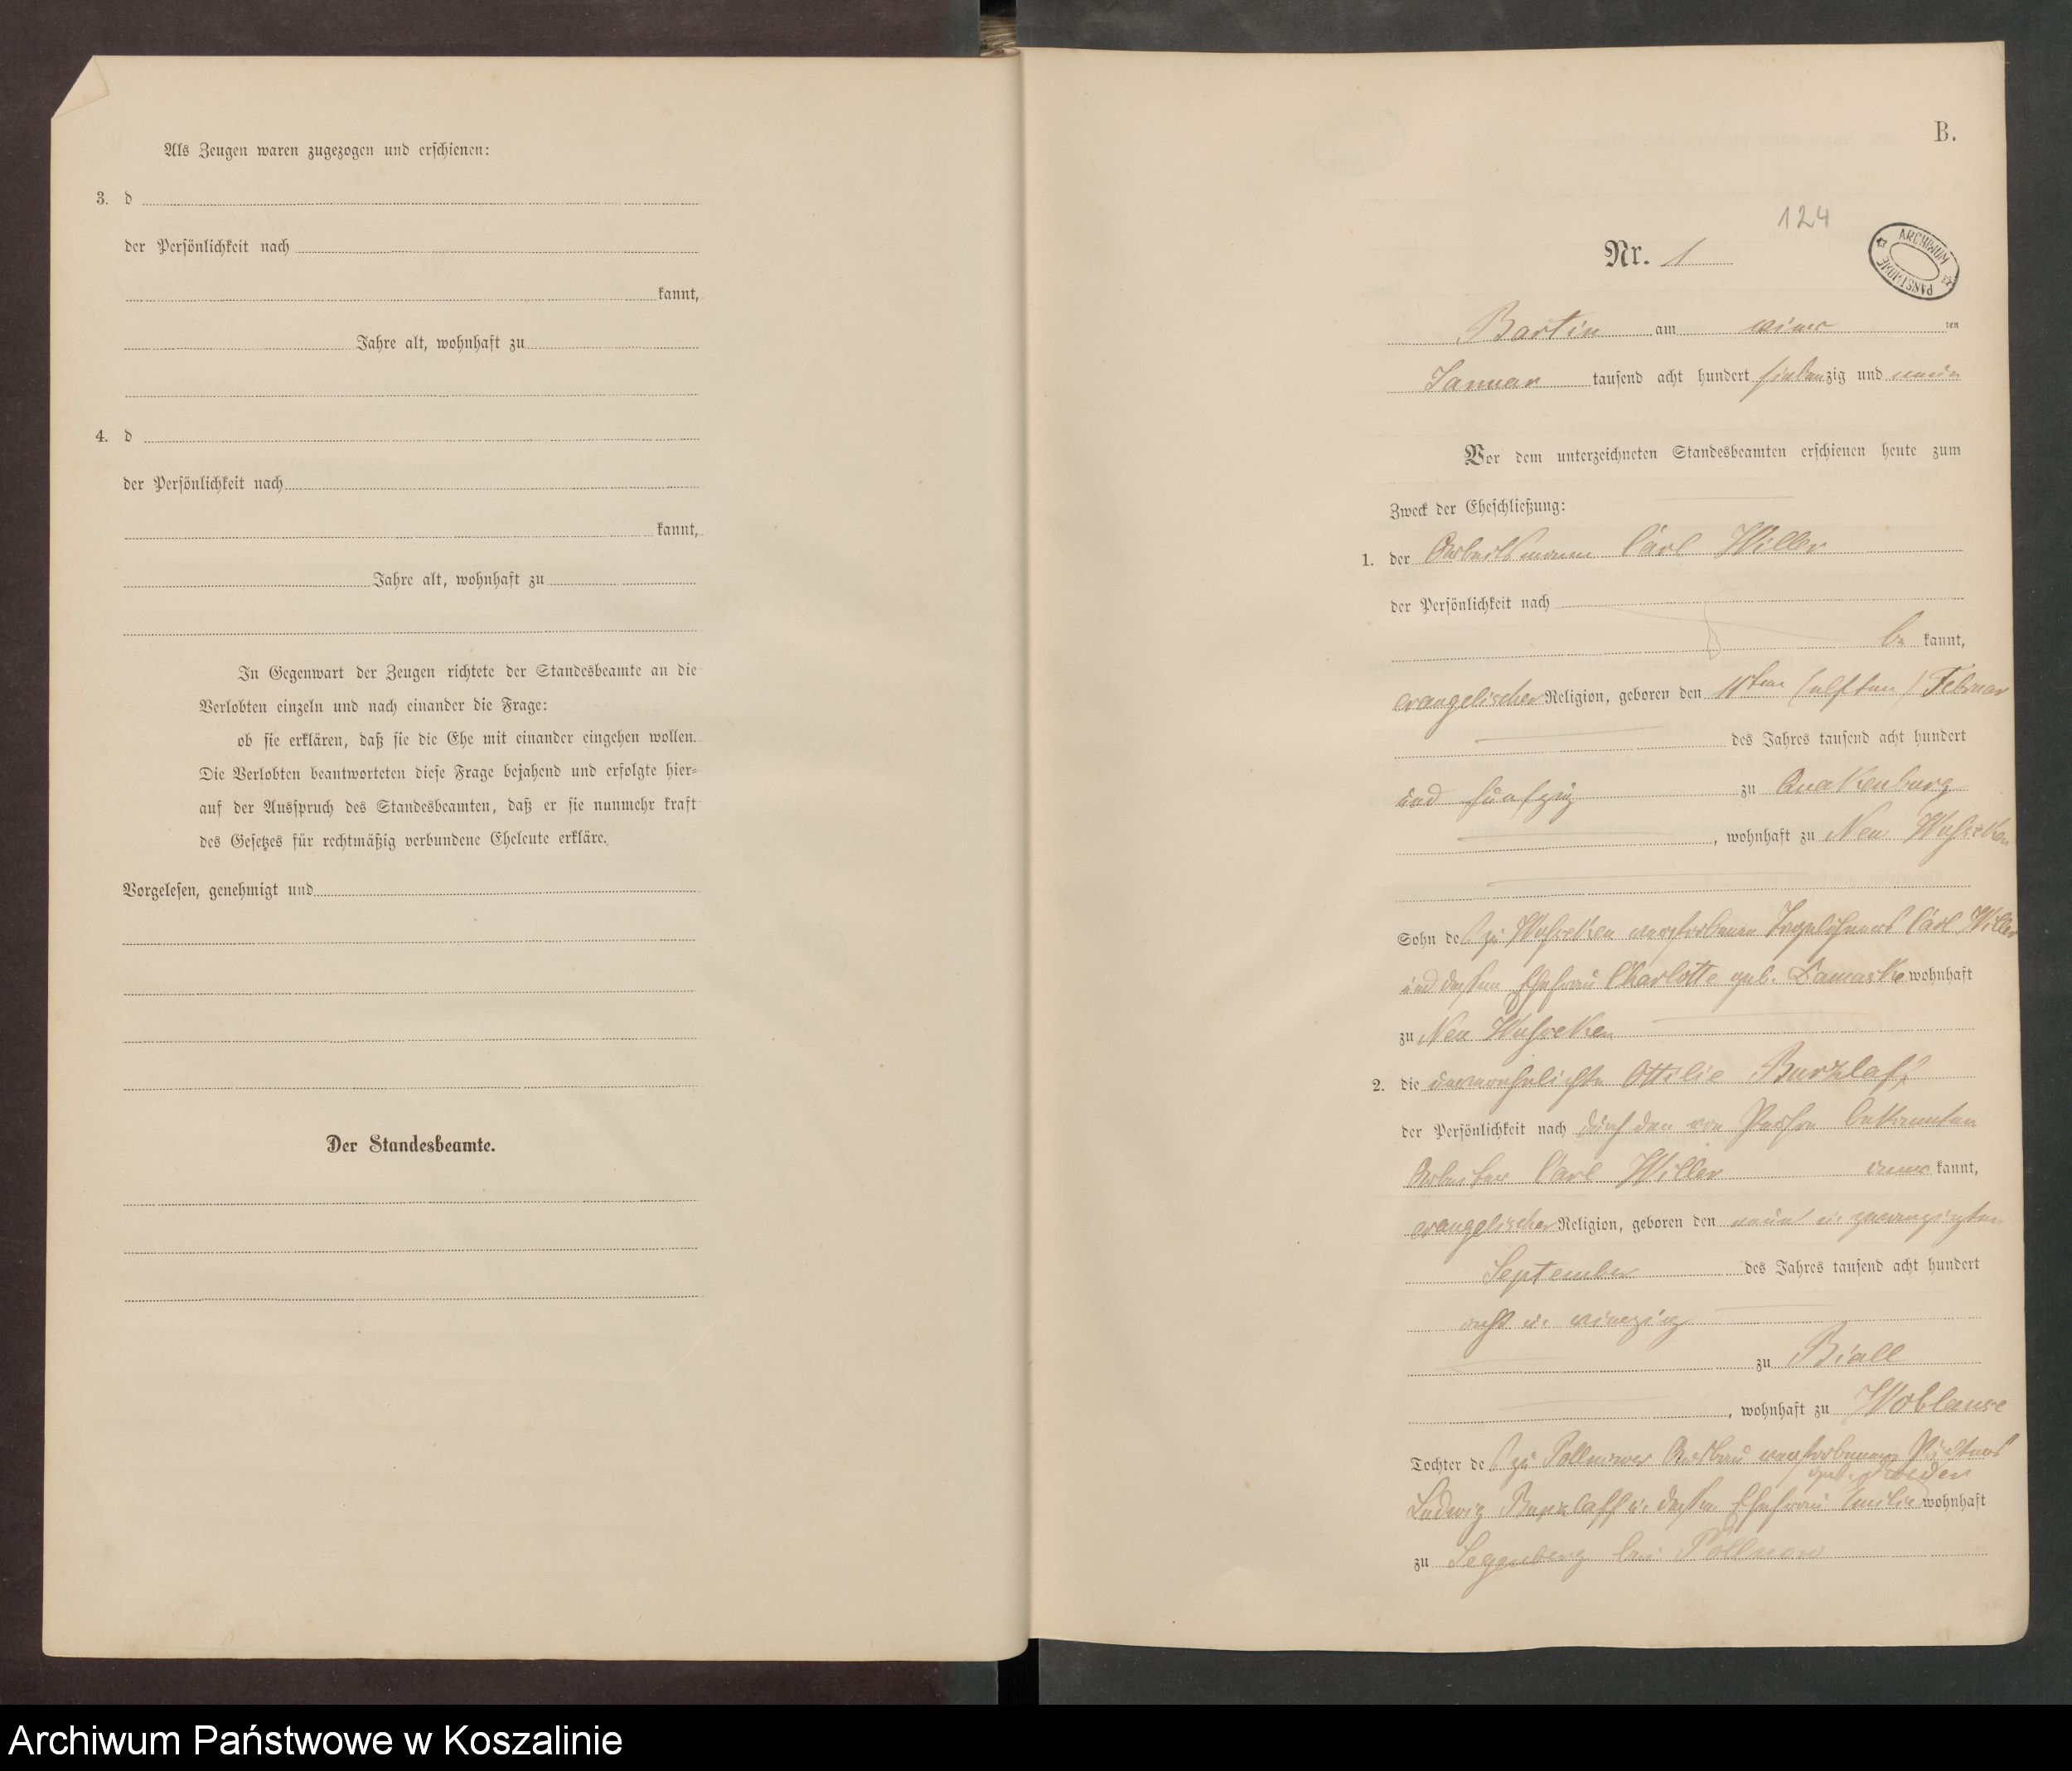 Als Zeugen waren zugezogen und erschienen:
3. d
der Persönlichkeit nach
kannt,
Jahre alt, wohnhaft zu
4. d
der Persönlichkeit nach
kannt,
Jahre alt, wohnhaft zu
In Gegenwart der Zeugen richtete der Standesbeamte an die
Verlobten einzeln und nach einander die Frage:
ob sie erklären, daß sie die Ehe mit einander eingehen wollen.
Die Verlobten beantworteten diese Frage bejahend und erfolgte hier-
auf der Ausspruch des Standesbeamten, daß er sie nunmehr kraft
des Gesetzes für rechtmäßig verbundene Eheleute erkläre.
Vorgelesen, genehmigt und
Der Standesbeamte.
B.
124
Nr. 1
ARCHIWUM PAŃSTWOWE
Bartin am ten
Januar tausend acht hundert siebenzig und neun
Vor dem unterzeichneten Standesbeamten erschienen heute zum
Zweck der Eheschließung:
1. der Arbeitsmann Carl Willer
der Persönlichkeit nach
be kannt,
evangelischer Religion, geboren den 11ten (elften) Februar
des Jahres tausend acht hundert
und fünfzig zu Quakenburg
, wohnhaft zu Neu Wusseken
Sohn des zu Wusseken verstorbenen Tagelöhners Carl Willer
und dessen Ehefrau Charlotte geb. Damaske wohnhaft
zu Neu Wusseken
2. die unverehelichte Ottilie Burzlaff
der Persönlichkeit nach durch den von Person bekannten
Arbeiter Carl Willer aner kannt,
evangelischer Religion, geboren den neun u. zwanzigsten
September des Jahres tausend acht hundert
acht u. vierzig
zu Biall
, wohnhaft zu Woblanse
Tochter des zu Pollnower Ausbau verstorbenen Pächters
geb.
Ludwig Burzlaff u. dessen Ehefrau Emilie wohnhaft
zu Segenberg bei Pollnow
Archiwum Państwowe w Koszalinie